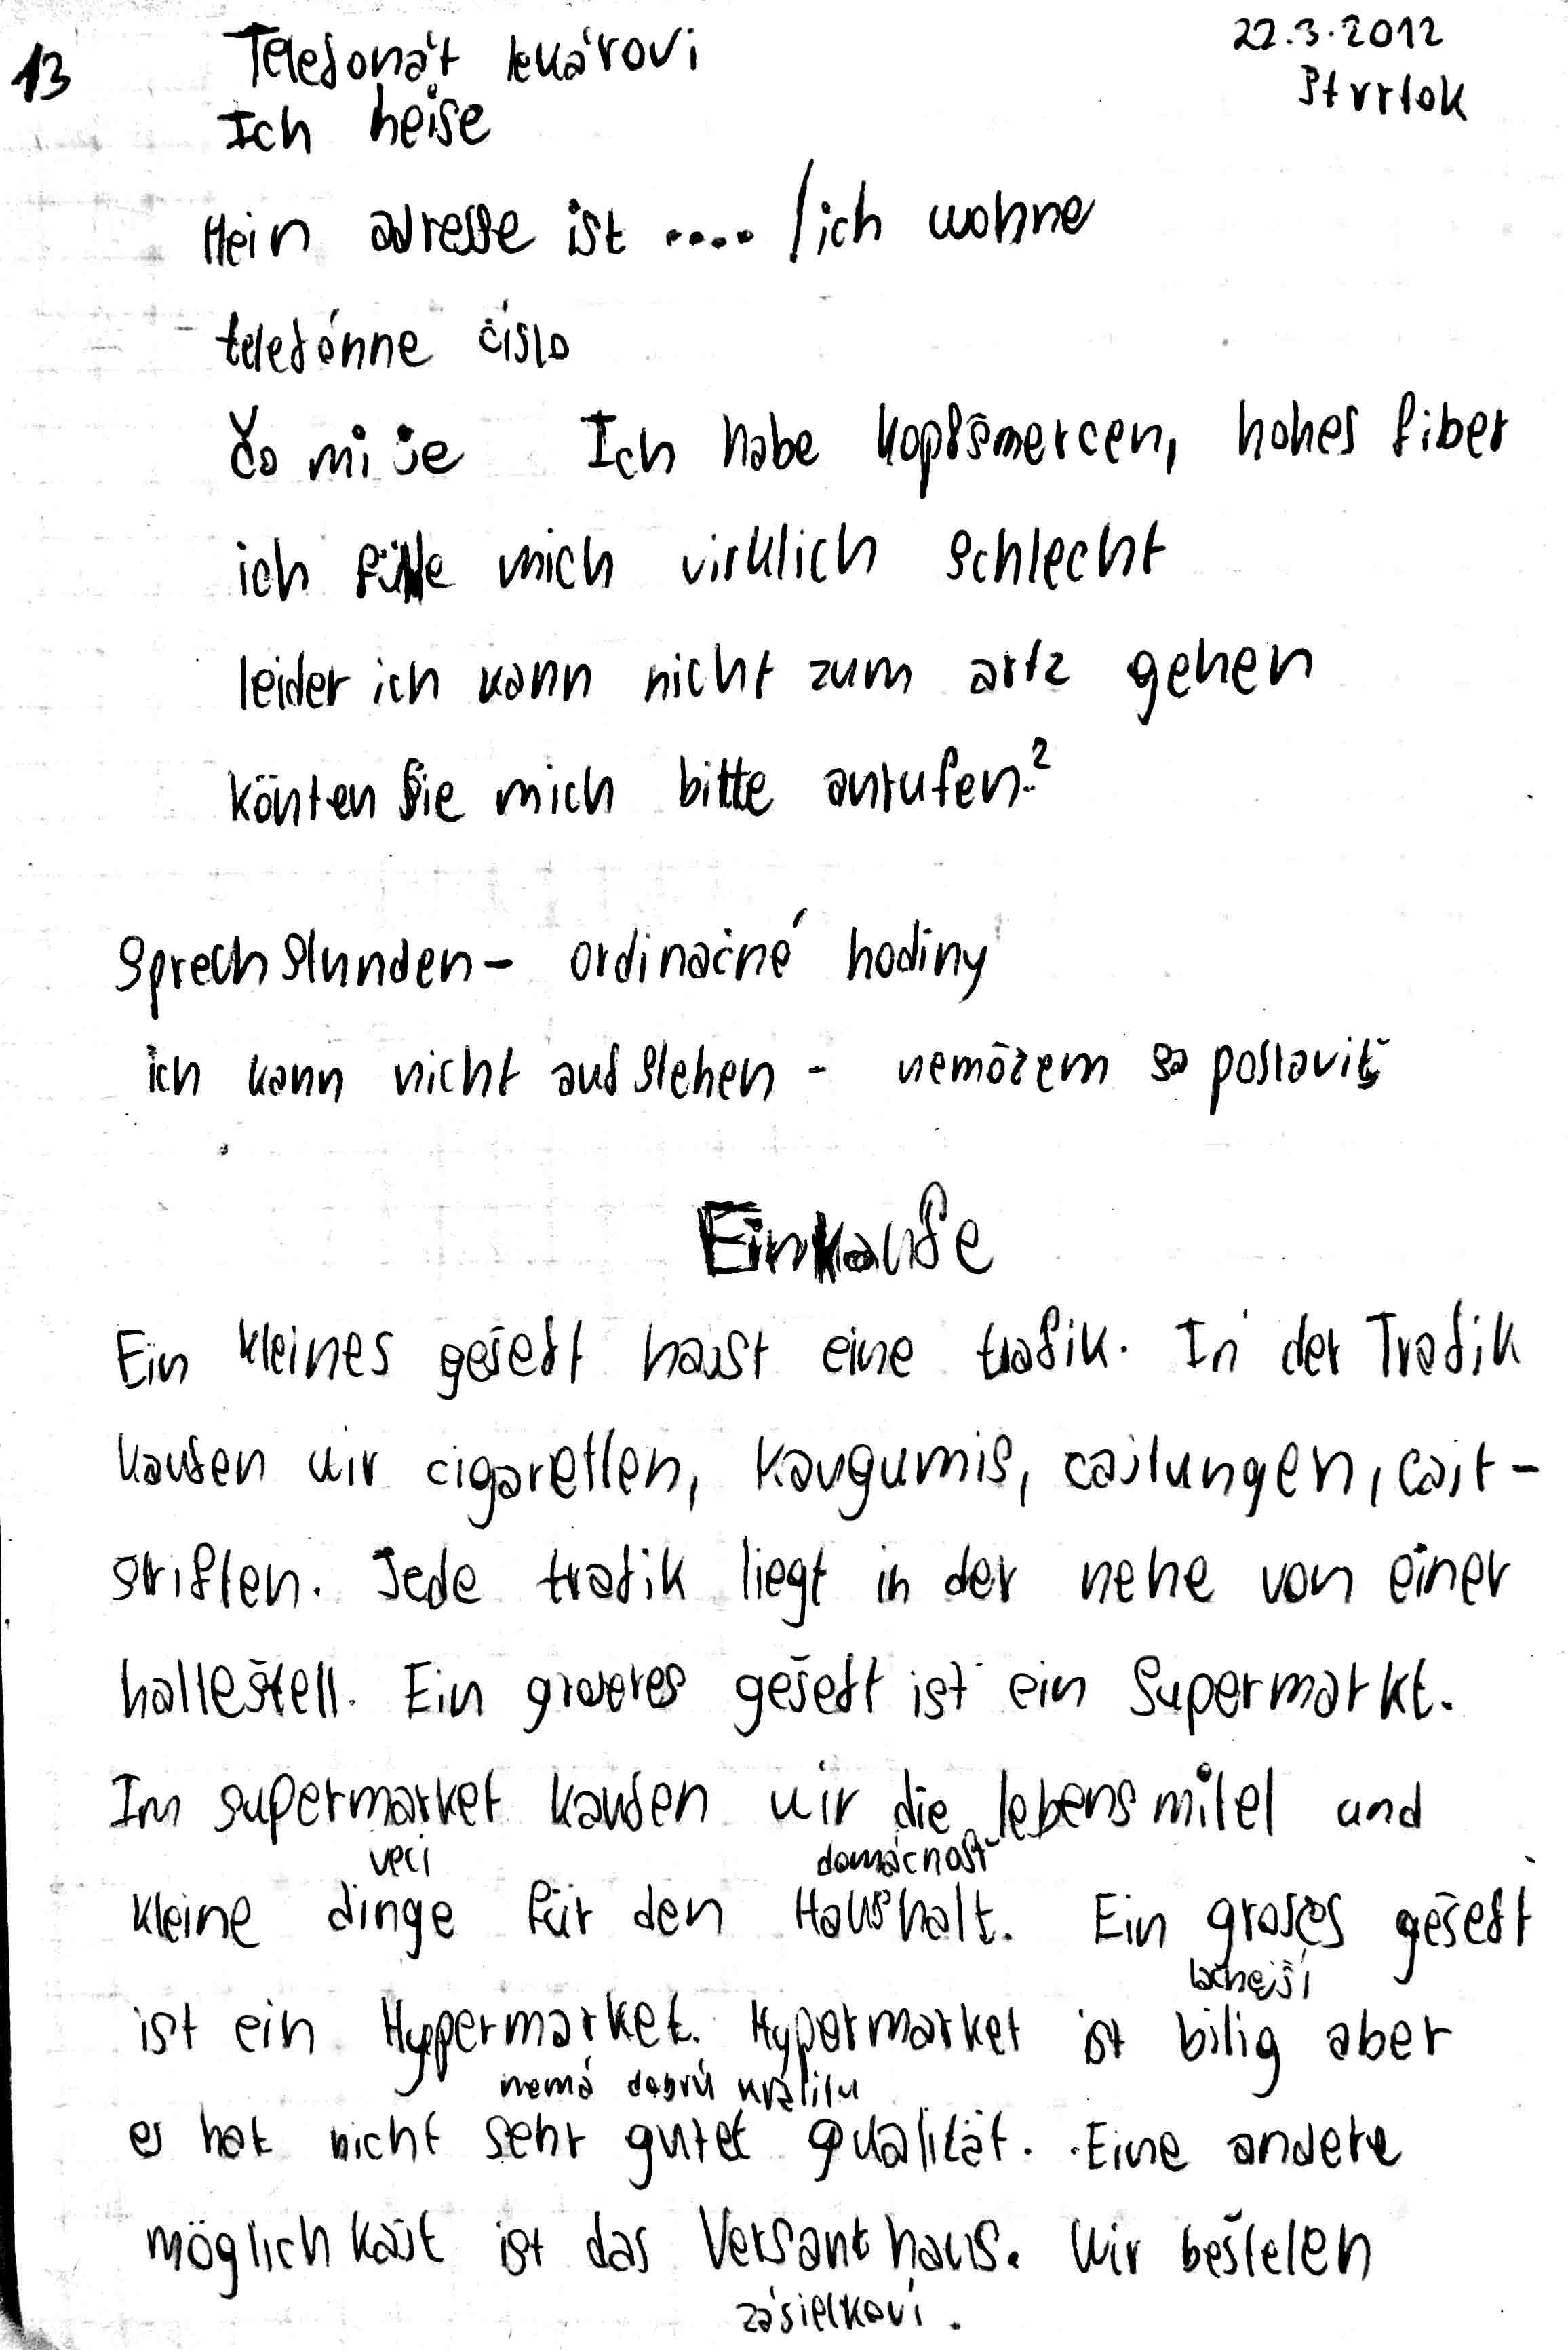 13
Telefonát lekárovi
22.3.2012
štvrtok
Ich heise
Mein adresse ist .... / ich wohne
telefónne číslo
Čo mi je Ich habe kopfšmercen, hohes fiber
ich fühle mich virklich schlecht
leider ich kann nicht zum artz gehen
könten Sie mich bitte anrufen?
Sprechstunden - ordinačné hodiny
ich kann nicht aufstehen - nemôžem sa postaviť
Einkaufe
Ein kleines gešeft haist eine trafik. In der Trafik
kaufen wir cigaretten, kaugumis, cajtungen, cajt-
šriften. Jede trafik liegt in der nehe von einer
halleštell. Ein groseres gešeft ist ein Supermarkt.
Im supermarket kaufen wir die lebensmitel und
veci domácnosť
kleine dinge für den Haushalt. Ein groses gešeft
lacnejší
ist ein Hypermarket. Hypermarket ist bilig aber
nemá dobrú kvalitu
es hat nicht sehr gutet qualität. Eine andere
möglichkajt ist das Versanthaus. Wir beštelen
zásielkoví.